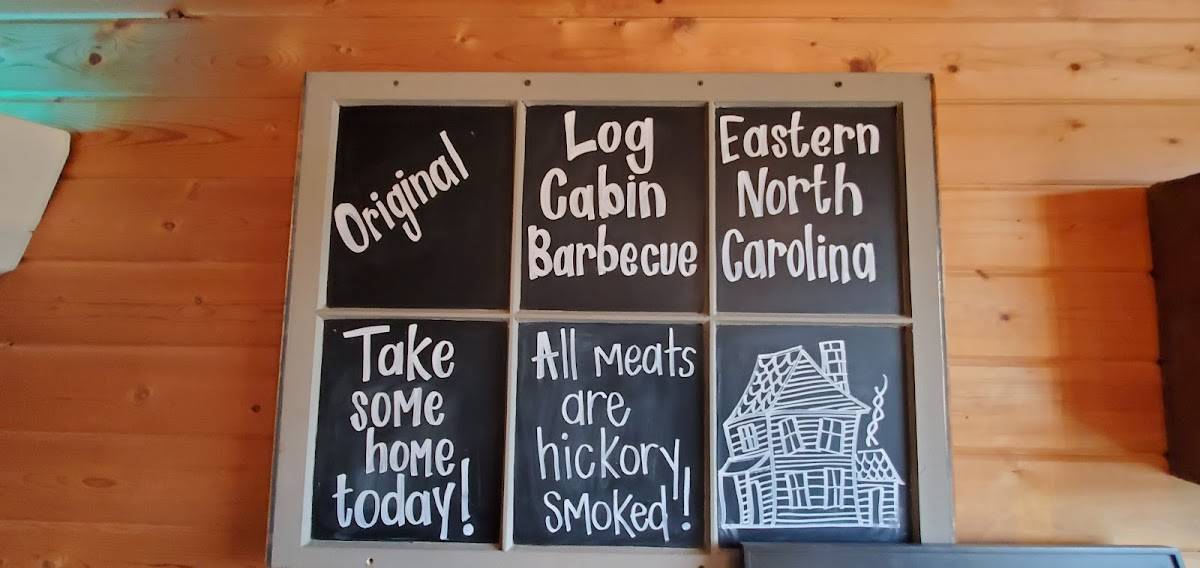 Original
Log
Cabin
Barbecue
Eastern
North
Carolina
Take
some
home
today!
All Meats
are
hickory
smoked!!